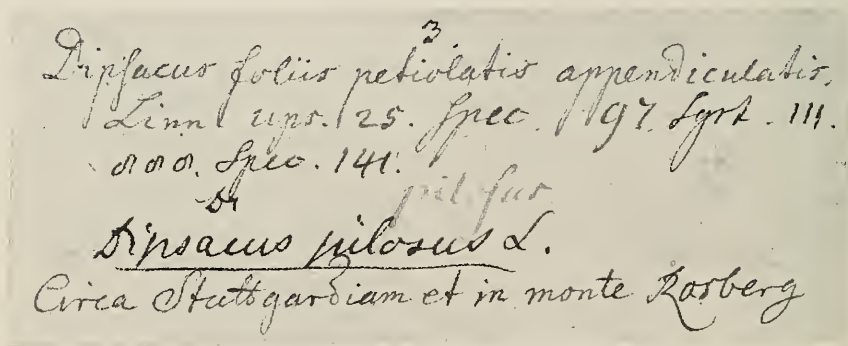 3
Dipsacus foliis petiolatis appendiculatis.
Linn ups. 25. Spec. 97. Syst. III.
Spec. 141.
pilosus
Di
Dipsacus pilosus L.
Circa Stuttgardiam et in monte Rosberg